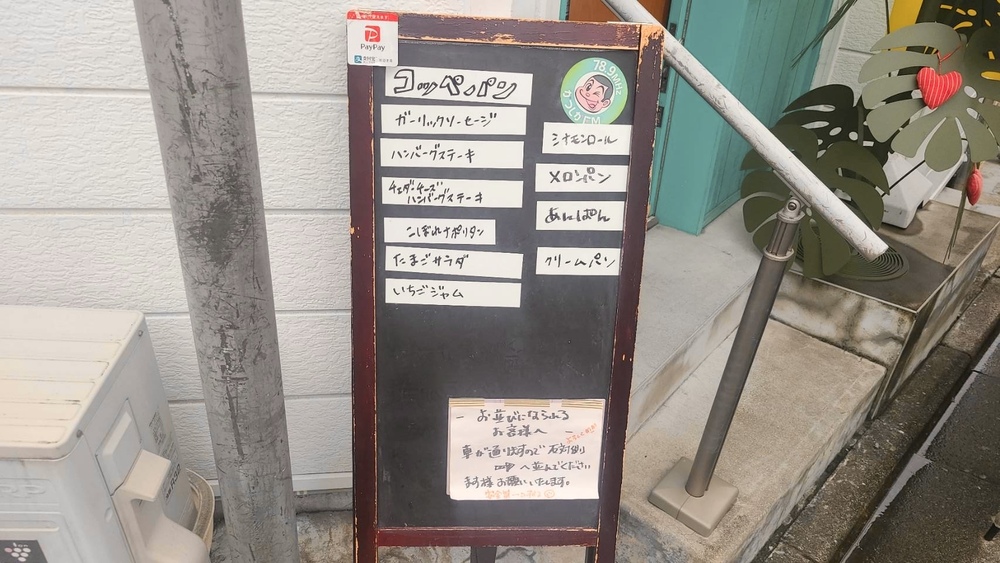 PayPay
コッペパン
ガーリックソーセージ
ハンバーグステーキ
チェダーチーズ
ハンバーグステーキ
こぼれナポリタン
たまごサラダ
いちごジャム
78.9MHz
かつしかFM
シナモンロール
メロンパン
あんぱん
クリームパン
- お並びになられる
お客様へ -
車が通りますので 反対側
へ並んでください
ます様お願いいたします。